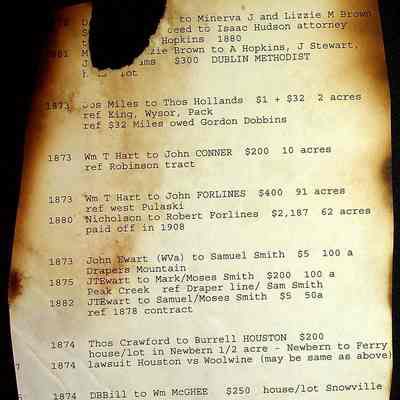 to Minerva J and Lizzie M Brown
deed to Isaac Hudson attorney
Hopkins 1880
1881 zie Brown to A Hopkins, J Stewart,
$300 DUBLIN METHODIST
lot
1873 Jos Miles to Thos Hollands $1 + $32 2 acres
ref King, Wysor, Pack
ref $32 Miles owed Gordon Dobbins
1873 Wm T Hart to John CONNER $200 10 acres
ref Robinson tract
1873 Wm T Hart to John FORLINES $400 91 acres
ref west Pulaski
1880 Nicholson to Robert Forlines $2,187 62 acres
paid off in 1908
1873 John Ewart (WVa) to Samuel Smith $5 100 a
Drapers Mountain
1875 JTEwart to Mark/Moses Smith $200 100 a
Peak Creek ref Draper line/ Sam Smith
1882 JTEwart to Samuel/Moses Smith $5 50a
ref 1878 contract
1874 Thos Crawford to Burrell HOUSTON $200
house/lot in Newbern 1/2 acre - Newbern to Ferry
1874 lawsuit Houston vs Woolwine (may be same as above)
1874 DBBill to Wm McGHEE $250 house/lot Snowville